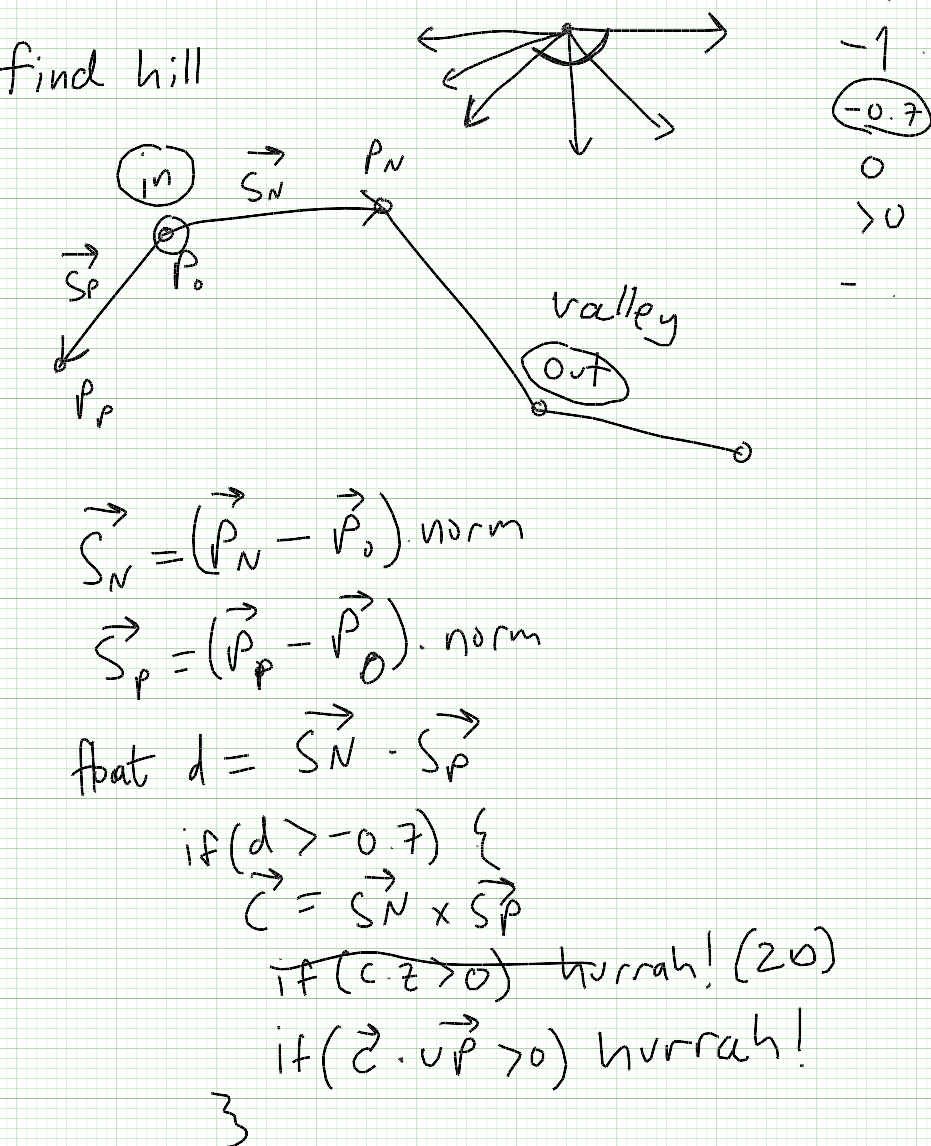 find hill
-1
-0.7
0
>0
-
in
S⃗N
PN
S⃗P
P0
PP
valley
out
S⃗N = (P⃗N - P⃗0).norm
S⃗P = (P⃗P - P⃗0).norm
float d = S⃗N · S⃗P
if(d > -0.7) {
C⃗ = S⃗N × S⃗P
if(c.z > 0) hurrah! (2D)
if(c⃗ · UP⃗ > 0) hurrah!
}